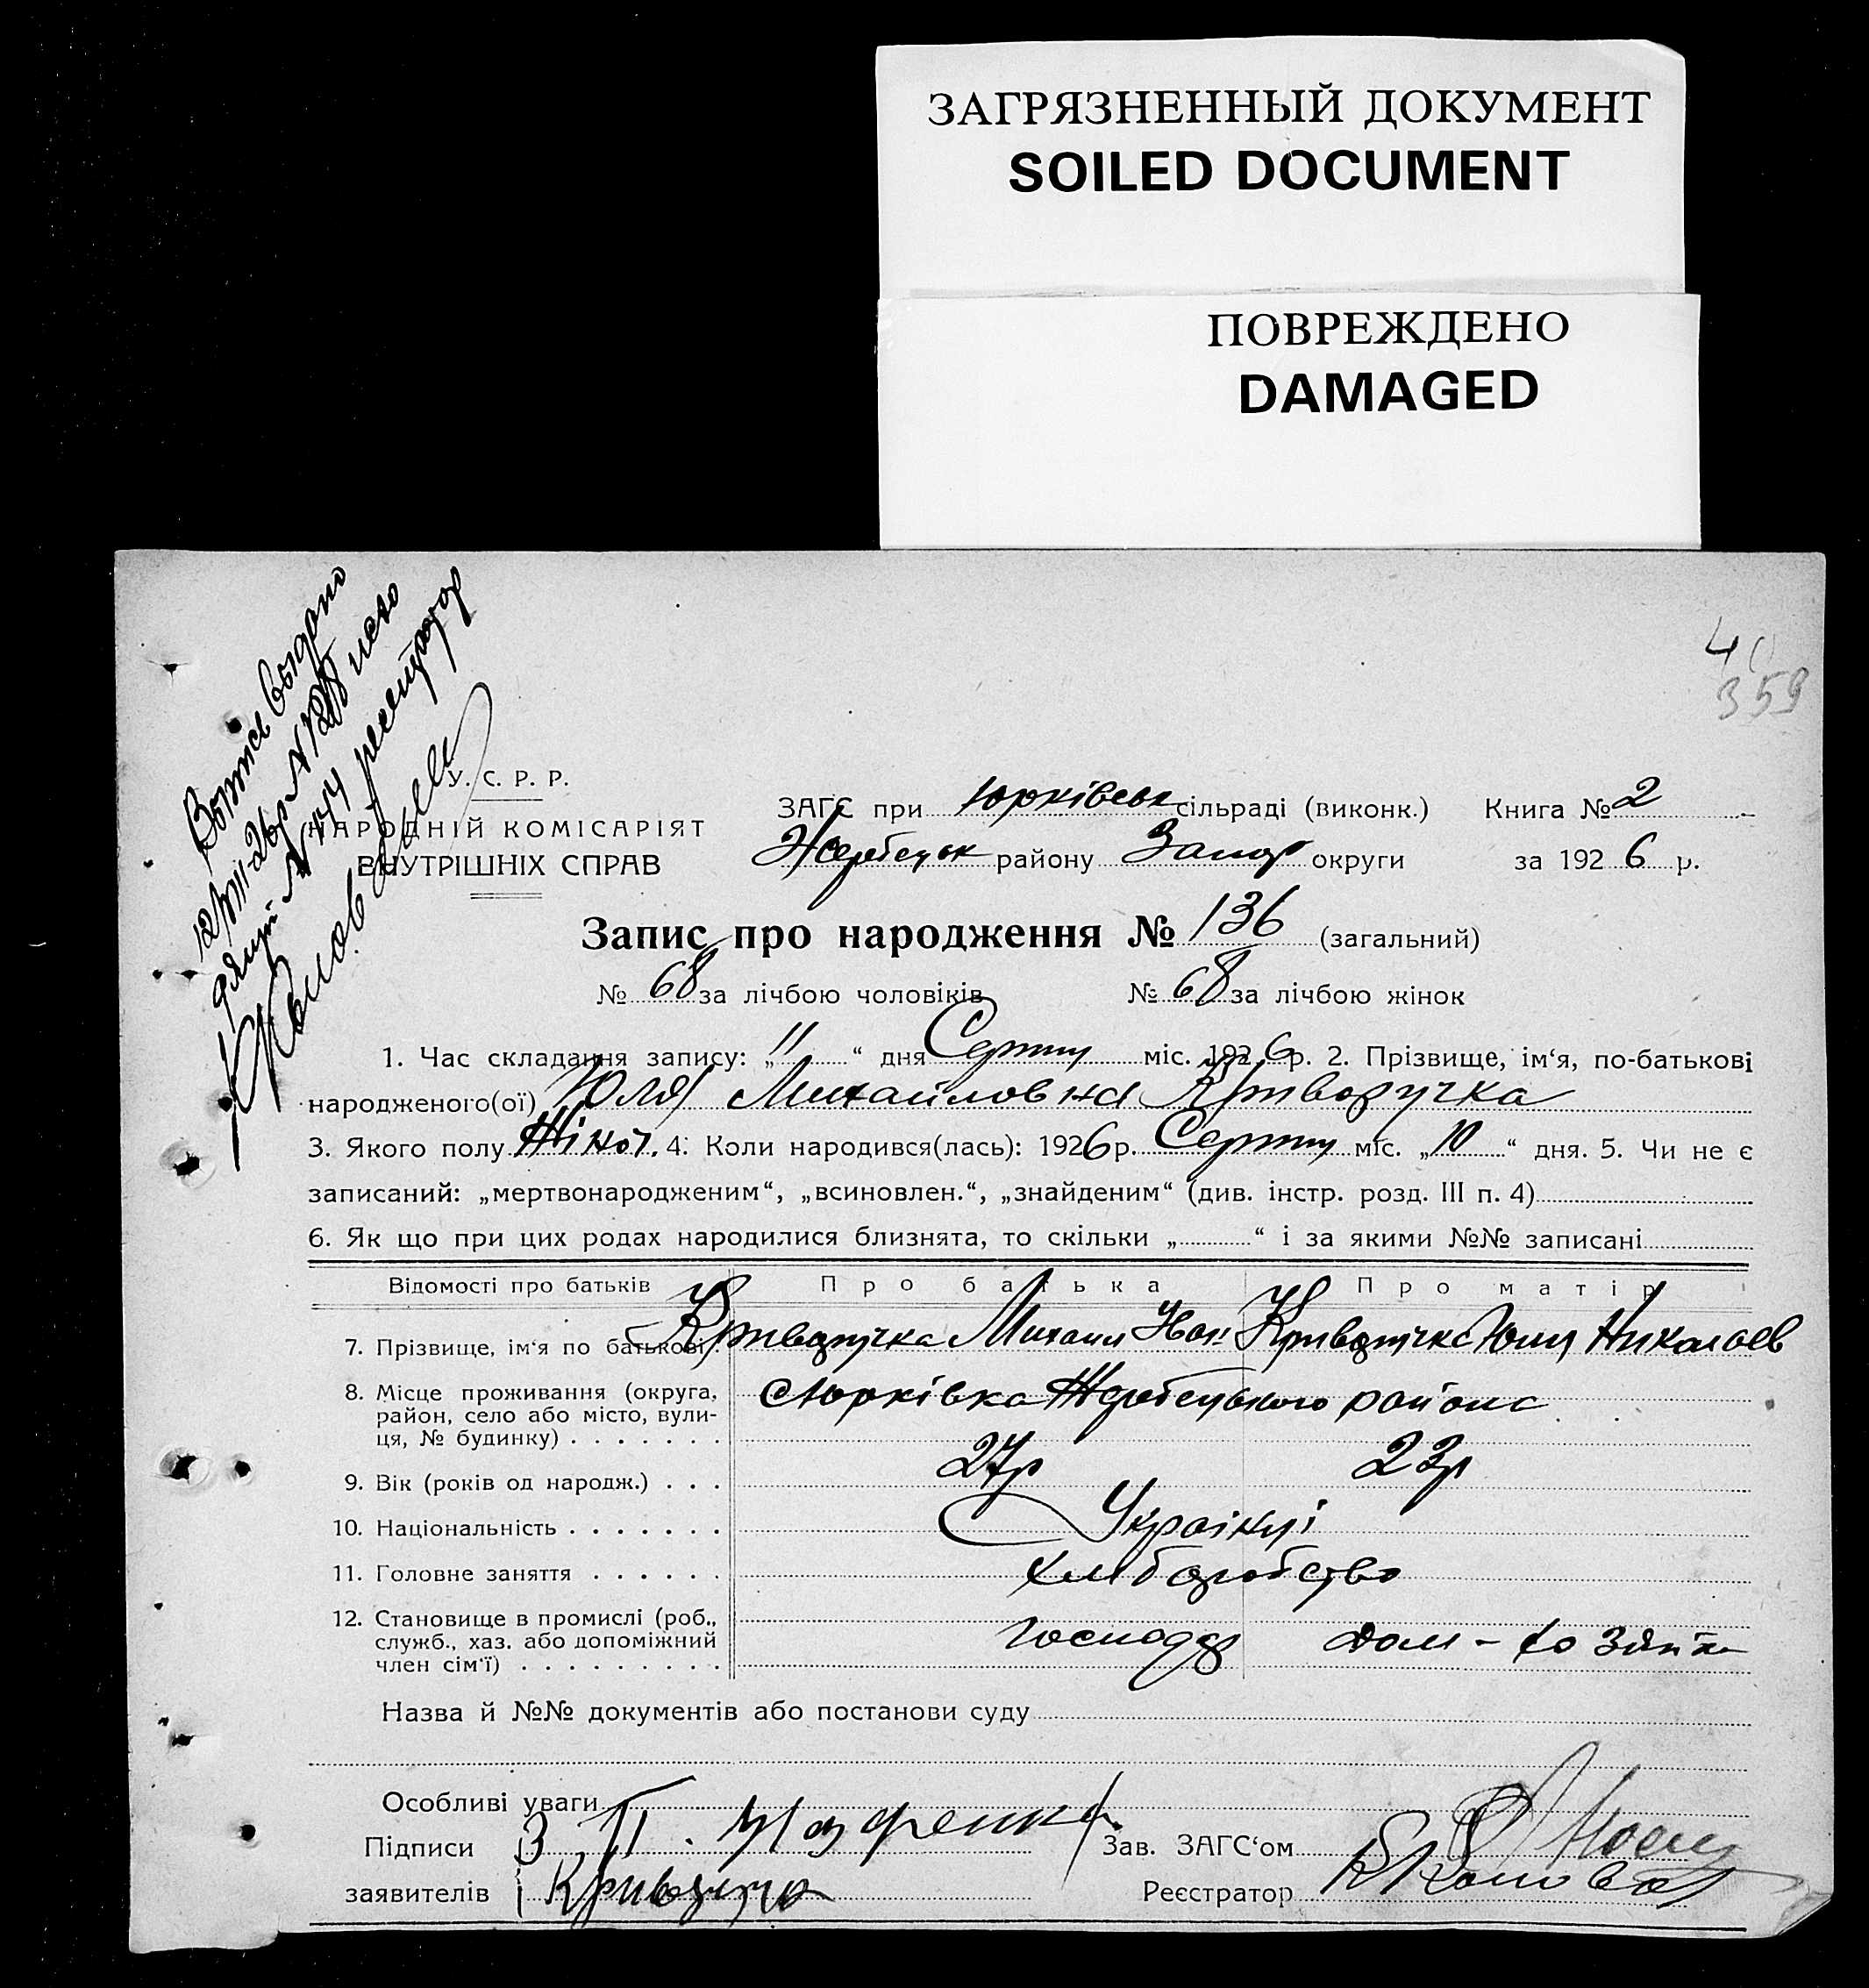 ЗАГРЯЗНЕННЫЙ ДОКУМЕНТ
SOILED DOCUMENT
ПОВРЕЖДЕНО
DAMAGED
40
359
У. С. Р. Р.
НАРОДНІЙ КОМІСАРІЯТ
ВНУТРІШНІХ СПРАВ
ЗАГС при Юрківськ сільраді (виконк.) Книга № 2
Жеребецьк району Запор округи за 1926 р.
Запис про народження № 136 (загальний)
№ 68 за лічбою чоловіків № 68 за лічбою жінок
1. Час складання запису: „11“ дня Серпня міс. 1926 р. 2. Прізвище, ім‘я, по-батькові
народженого(ої) Юля Михайловна Криворучка
3. Якого полу Жіноч. 4. Коли народився(лась): 1926 р. Серпня міс. „10“ дня. 5. Чи не є
записаний: „мертвонародженим“, „всиновлен.“, „знайденим“ (див. інстр. розд. III п. 4)
6. Як що при цих родах народилися близнята, то скільки „ “ і за якими №№ записані
Відомості про батьків Про батька Про матір
7. Прізвище, ім‘я по батькові Криворучка Михаил Иван Криворучка Юлия Николаев
8. Місце проживання (округа, район, село або місто, вули-ця, № будинку) с Юрківка Жеребецького района
9. Вік (років од народж.) 27р 23р
10. Національність Українці
11. Головне заняття хліборобство
12. Становище в промислі (роб., служб., хаз. або допоміжний член сім‘ї) господар дом-хозяйк
Назва й №№ документів або постанови суду
Особливі уваги
Підписи
заявителів Криворучка
Зав. ЗАГС‘ом
Реєстратор Коновал